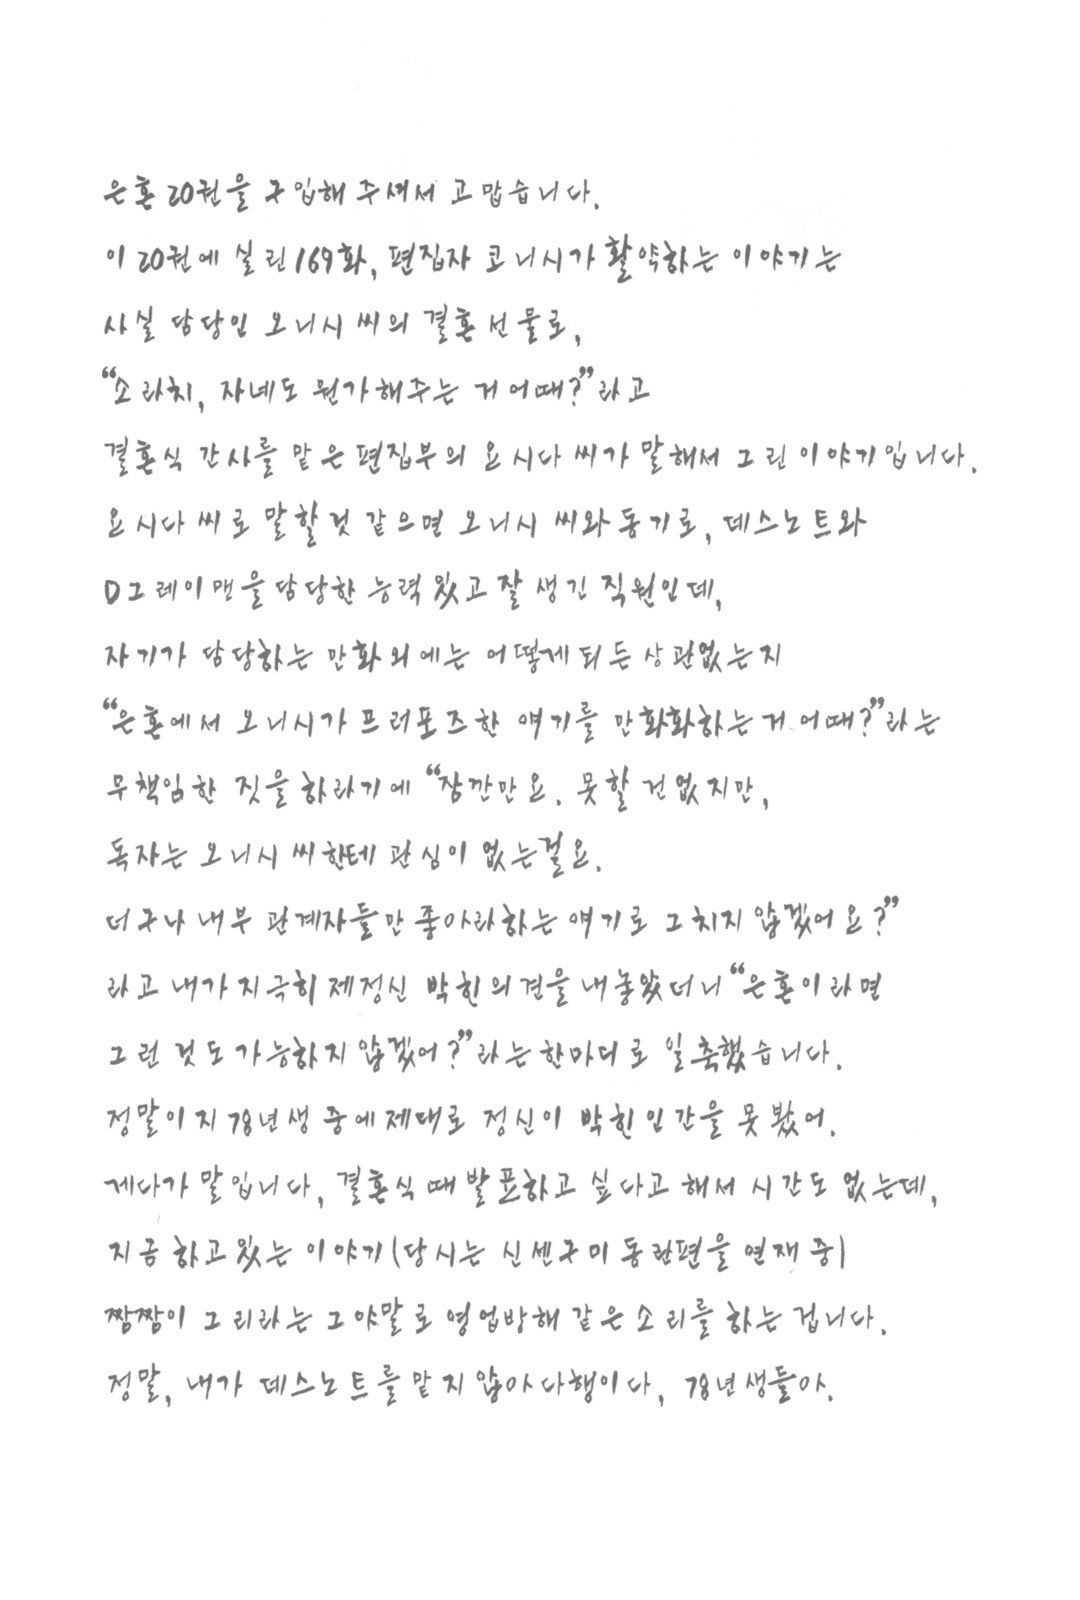 은혼 20권을 구입해 주셔서 고맙습니다.
이 20권에 실린 169화, 편집자 코니시가 활약하는 이야기는
사실 담당인 오니시 씨의 결혼 선물로,
“소라치, 자네도 뭔가 해주는 거 어때?”라고
결혼식 간사를 맡은 편집부의 요시다 씨가 말해서 그린 이야기입니다.
요시다 씨로 말할 것 같으면 오니시 씨와 동기로, 데스노트와
D그레이맨을 담당한 능력 있고 잘 생긴 직원인데,
자기가 담당하는 만화 외에는 어떻게 되든 상관없는지
“은혼에서 오니시가 프러포즈한 얘기를 만화화하는 거 어때?”라는
무책임한 짓을 하라기에 “잠깐만요. 못할 건 없지만,
독자는 오니시 씨한테 관심이 없는걸요.
더구나 내부 관계자들만 좋아라 하는 얘기로 그치지 않겠어요?”
라고 내가 지극히 제정신 박힌 의견을 내놓았더니 “은혼이라면
그런 것도 가능하지 않겠어?”라는 한마디로 일축했습니다.
정말이지 78년생 중에 제대로 정신이 박힌 인간을 못 봤어.
게다가 말입니다, 결혼식 때 발표하고 싶다고 해서 시간도 없는데,
지금 하고 있는 이야기(당시는 신센구미 동란편을 연재 중)
짬짬이 그리라는 그야말로 영업방해 같은 소리를 하는 겁니다.
정말, 내가 데스노트를 맡지 않아 다행이다, 78년생들아.